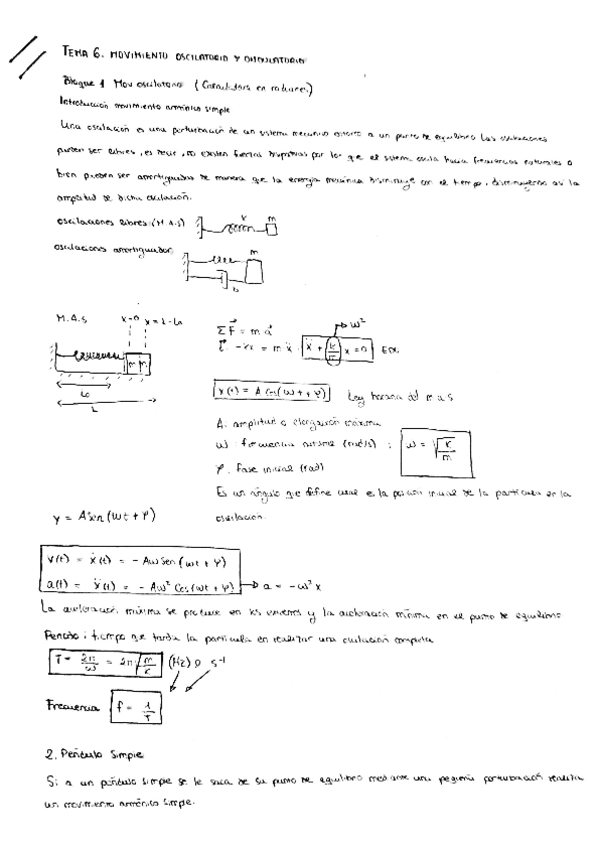 TEMA 6. MOVIMIENTO OSCILATORIO Y ONDULATORIO
Bloque 1 Mov oscilatorio (Calculadora en radianes)
Introducción movimiento armónico simple
Una oscilación es una perturbación de un sistema mecánico entorno a un punto de equilibrio. Las oscilaciones
pueden ser libres, es decir, no existen fuerzas disipativas por lo que el sistema oscila hacia frecuencias naturales o
bien pueden ser amortiguadas de manera que la energía mecánica disminuye con el tiempo, disminuyendo así la
amplitud de dicha oscilación.
oscilaciones libres: (M.A.S) K m
oscilaciones amortiguador m
b
M.A.S x=0 x=L-Lo
m m
Lo
L
ΣF = m·a → w²
-kx = m ẍ ẍ + k/m x = 0 EDL
x(t) = A cos(wt + φ) Ley horaria del m a s
A: amplitud o elongación máxima
w: frecuencia natural (rad/s) : w = √k/m
φ: Fase inicial (rad)
Es un ángulo que define cual es la posición inicial de la partícula en la
oscilación.
y = A sen(wt + φ)
v(t) = ẋ(t) = - Aw sen(wt + φ)
a(t) = ẍ(t) = - Aw² cos(wt + φ) → a = -w²x
La aceleración máxima se produce en los extremos y la aceleración mínima en el punto de equilibrio
Periodo: tiempo que tarda la partícula en realizar una oscilación completa
T = 2π/w = 2π√m/k (Hz) o s⁻¹
Frecuencia f = 1/T
2. Péndulo Simple
Si a un péndulo simple se le saca de su punto de equilibrio mediante una pequeña perturbación realiza
un movimiento armónico simple.